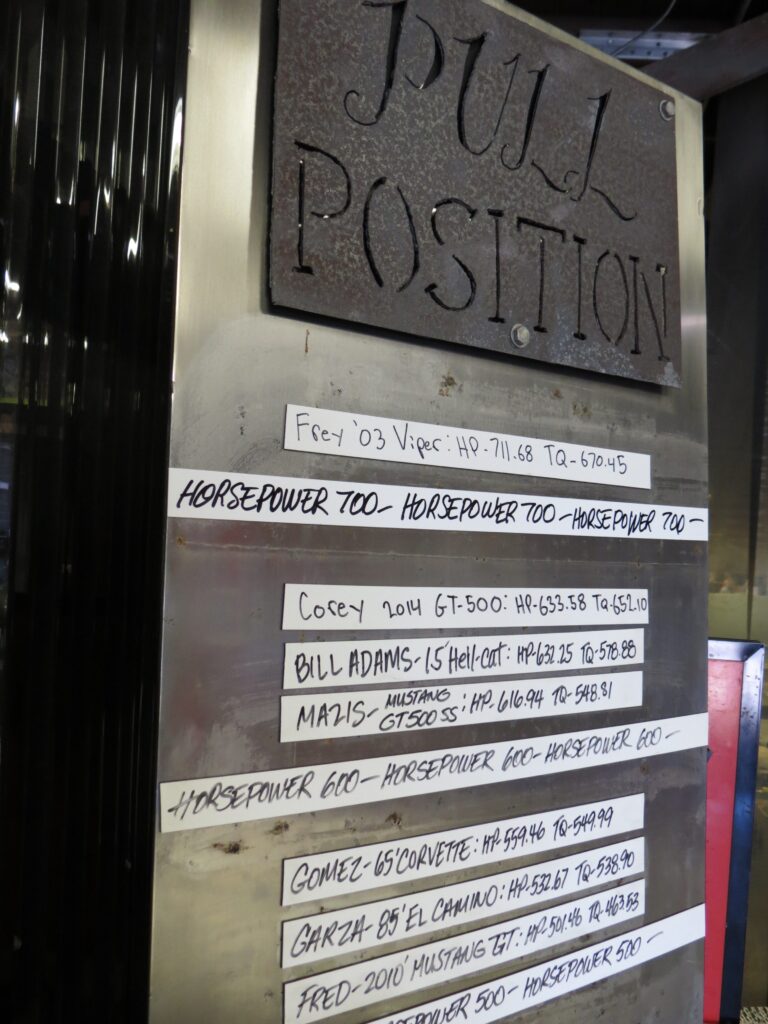 PULL
POSITION
Frey '03 Viper: HP-711.68 TQ-670.45
HORSEPOWER 700- HORSEPOWER 700 -HORSEPOWER 700-
Corey 2014 GT-500: HP-633.58 TQ-652.10
BILL ADAMS-15' Hell-cat: HP-632.25 TQ-578.88
MAZIS- MUSTANG GT500 SS: HP-616.94 TQ-548.81
HORSEPOWER 600-HORSEPOWER 600-HORSEPOWER 600-
GOMEZ-65' CORVETTE: HP-559.46 TQ-549.99
GARZA-85' EL CAMINO: HP-532.67 TQ-538.90
FRED-2010' MUSTANG GT: HP-501.46 TQ-463.53
500-HORSEPOWER 500-